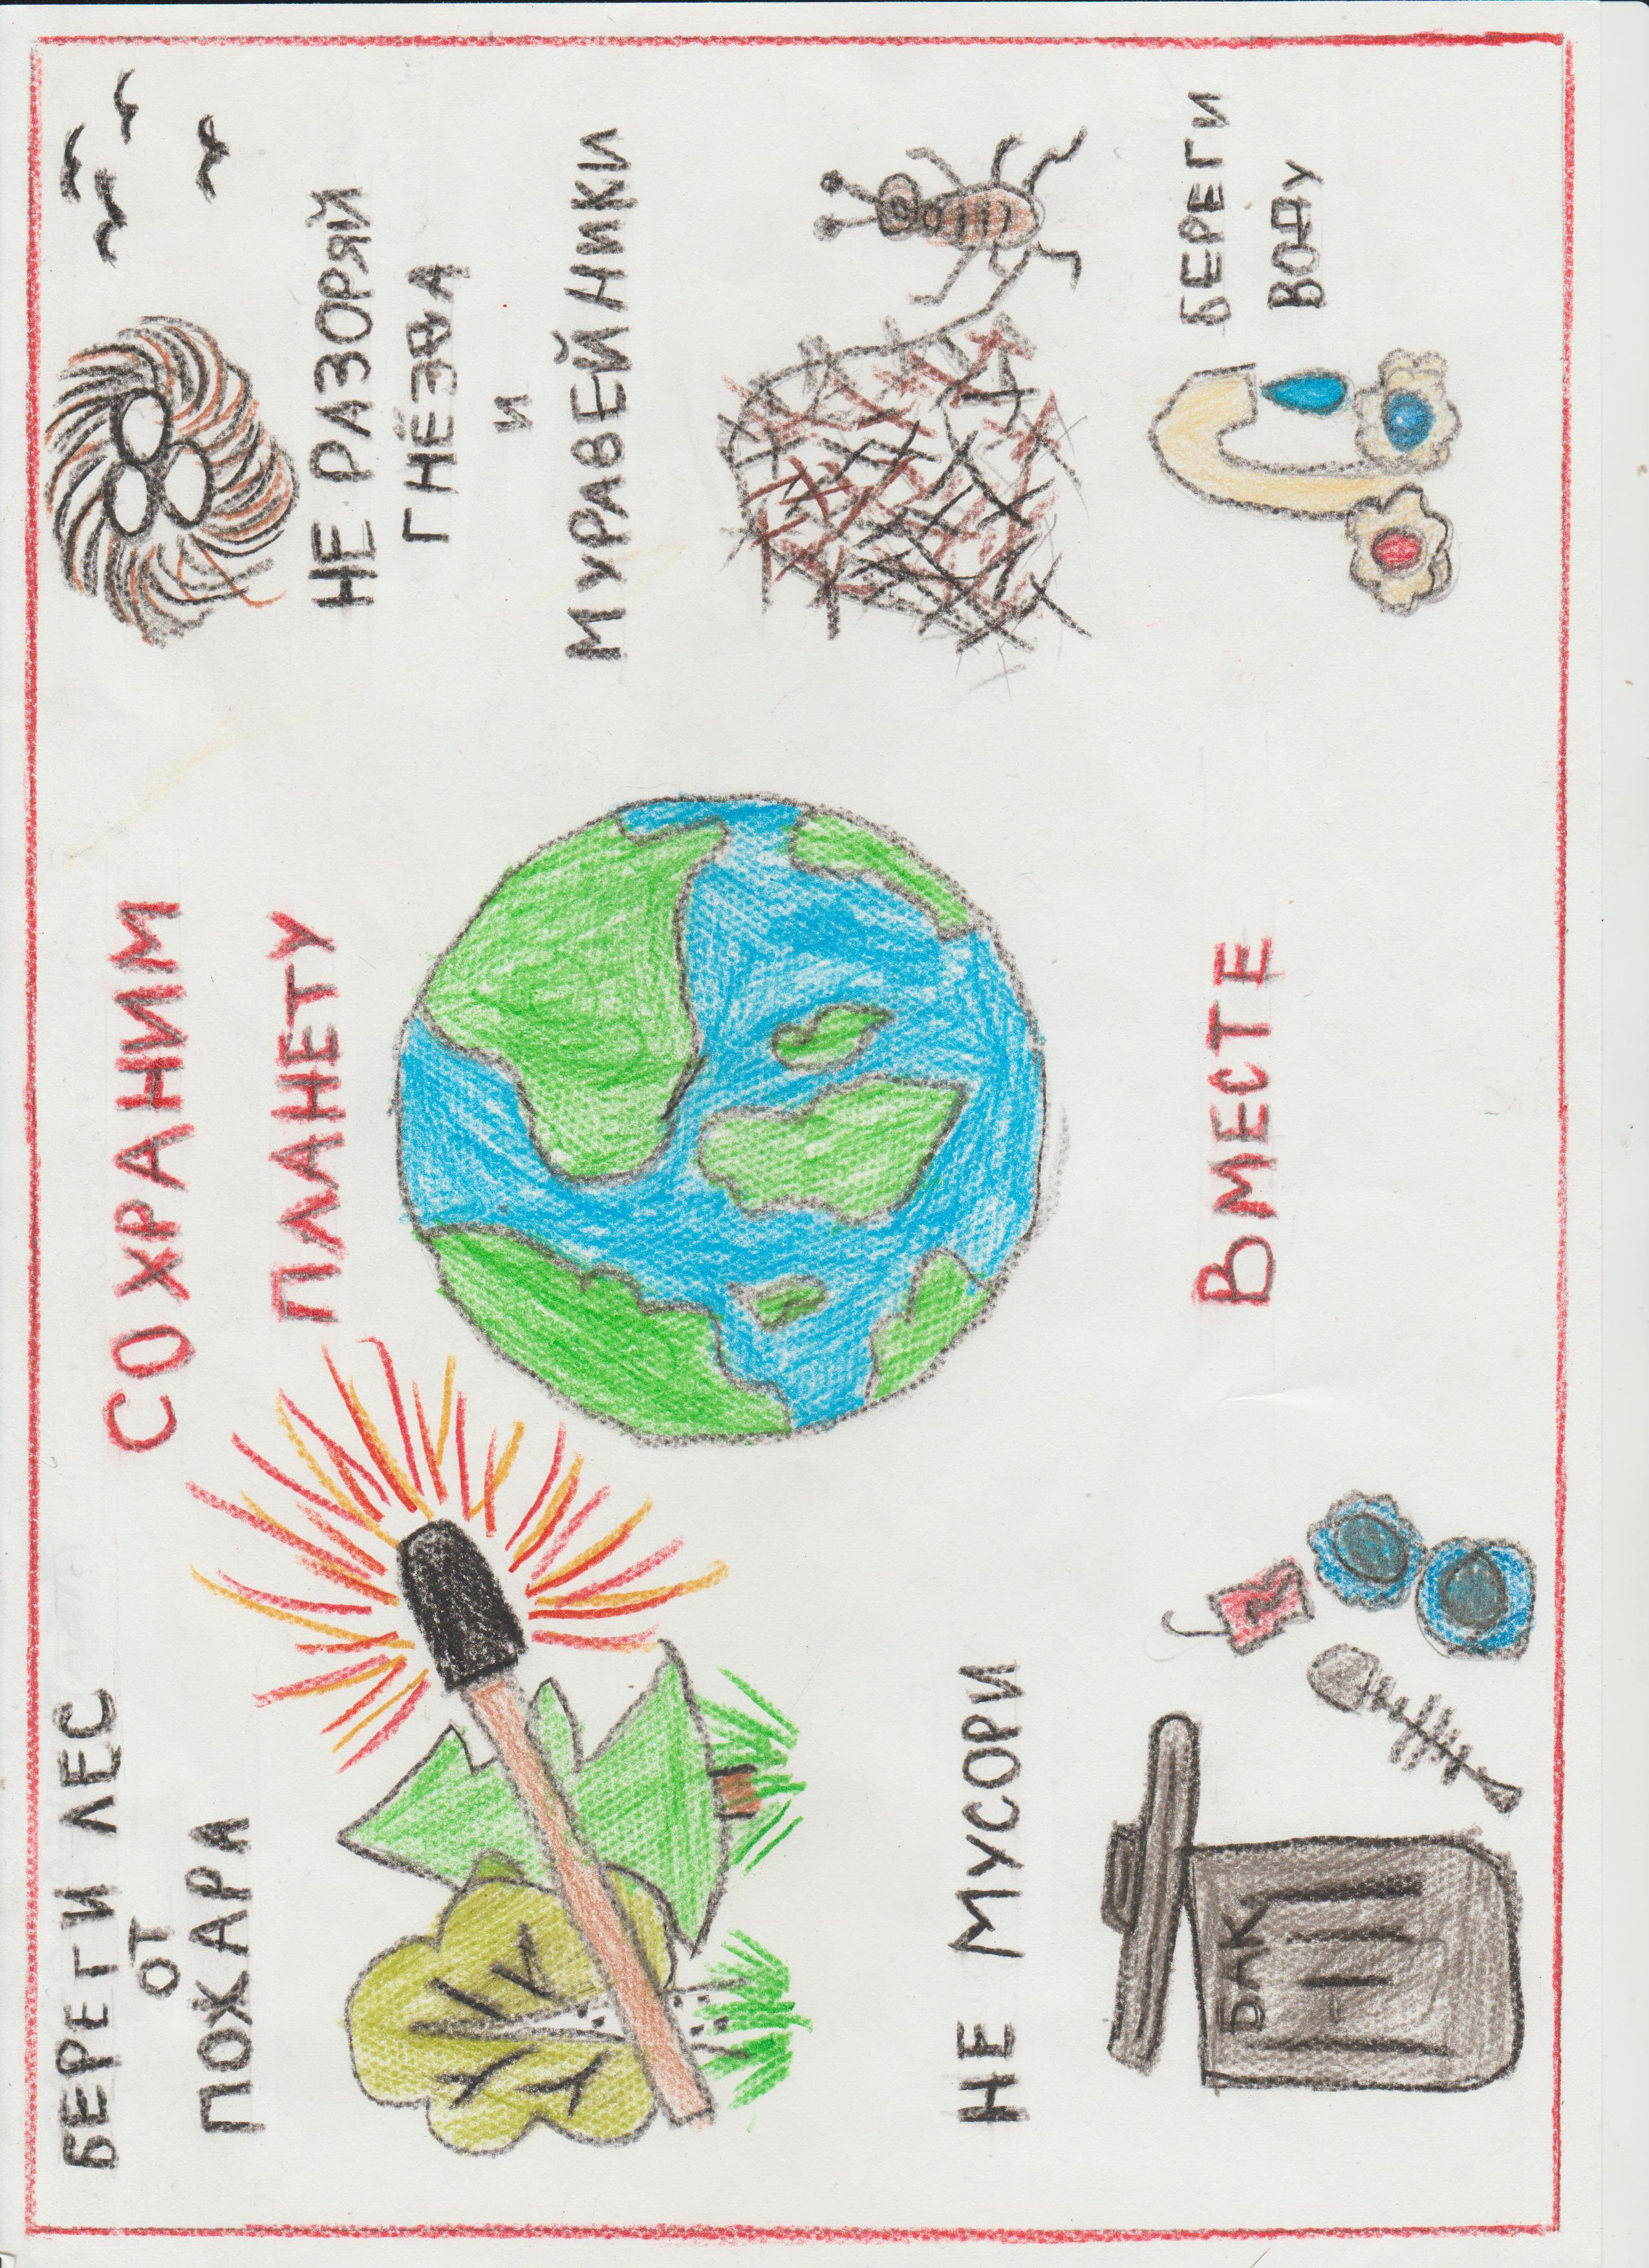 БЕРЕГИ ЛЕС
ОТ
ПОЖАРА
СОХРАНИМ
ПЛАНЕТУ
НЕ РАЗОРЯЙ
ГНЁЗДА
И
МУРАВЕЙНИКИ
НЕ МУСОРИ
БАК
ВМЕСТЕ
БЕРЕГИ
ВОДУ